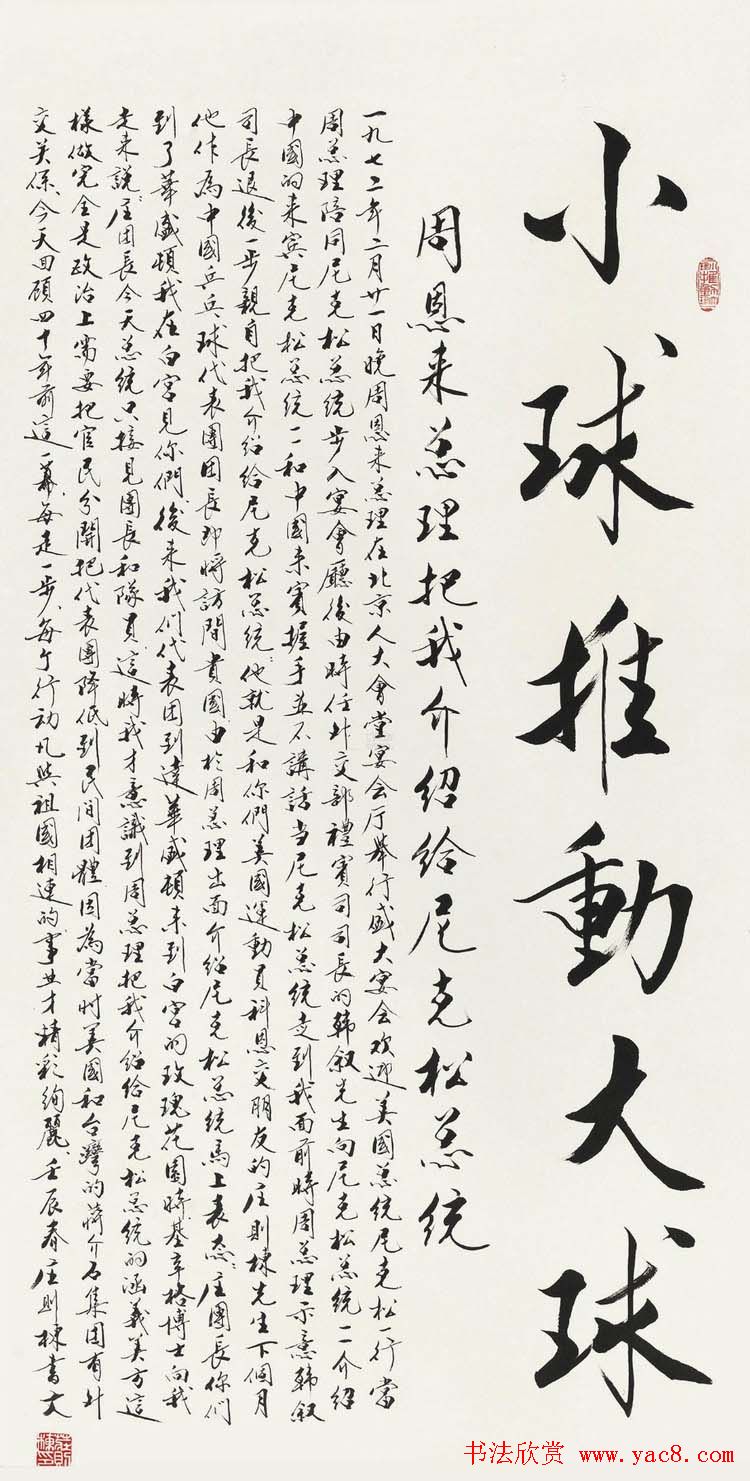 小球推動大球
周恩来总理把我介绍给尼克松总统
一九七二年二月廿一日晚周恩来总理在北京人大會堂宴会厅举行盛大宴会欢迎美国总统尼克松一行當
周总理陪同尼克松总统步入宴會廳後由時任外交部禮賓司司長的韩叙先生向尼克松总统一一介绍
中國的来宾尼克松总统一一和中國来賓握手並不講話当尼克松总统走到我面前時周总理示意韩叙
司長退後一步親自把我介绍给尼克松总统:他就是和你們美國運動員科恩交朋友的庄則棟先生下個月
他作為中國乒乓球代表團团長即将訪問貴國由於周总理出面介绍尼克松总统馬上表态:庄團長你們
到了華盛頓我在白宫見你們後来我们代表团到達華盛頓来到白宫的玫瑰花園時基辛格博士向我
走来説:庄团長今天总统只接見團長和隊員這時我才意識到周总理把我介绍给尼克松总统的涵義美方這
樣做完全是政治上需要把官民分開把代表團降低到民間团體因為當时美國和台灣的蒋介石集团有外
交关係今天回顾四十年前這一幕每走一步每个行动凡與祖國相連的事业才精彩绚麗壬辰春庄則棟書文
書法欣赏 www.yac8.com